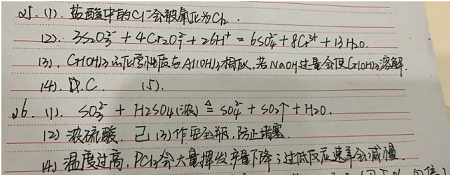 25. (1). 盐酸中的Cl⁻会被氧化为Cl₂.
(2). 3S₂O₃²⁻ + 4Cr₂O₇²⁻ + 26H⁺ = 6SO₄²⁻ + 8Cr³⁺ + 13H₂O.
(3). Cr(OH)₃的化学性质与Al(OH)₃相似, 若NaOH过量会使Cr(OH)₃溶解.
(4). D.C. (5).
26. (1). SO₃²⁻ + H₂SO₄(浓) ≜ SO₄²⁻ + SO₂↑ + H₂O.
(2) 浓硫酸. 己 (3) 作安全瓶, 防止堵塞
(4) 温度过高, PCl₃会大量挥发产量下降; 过低反应速率会减慢.